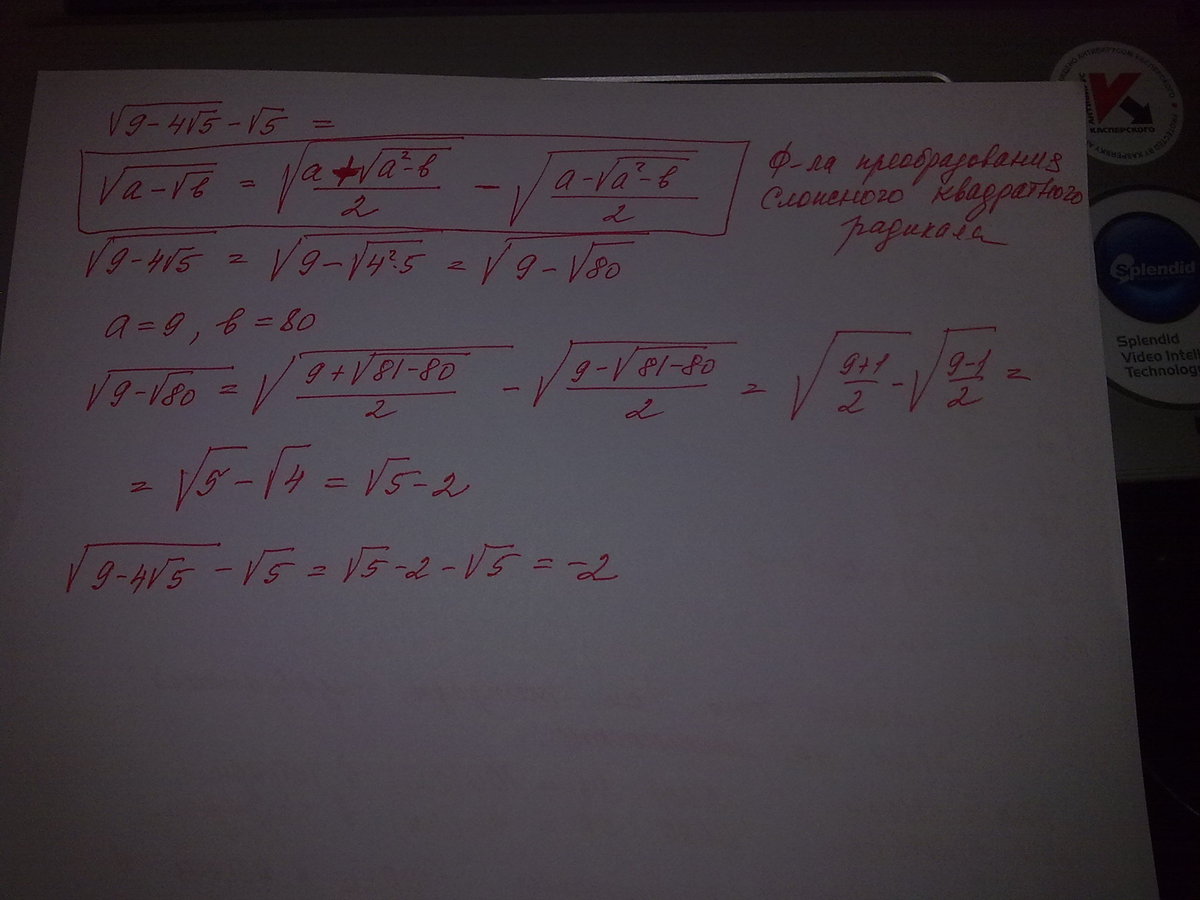 √(9-4√5) - √5 =
√(a-√в) = √((a+√(a²-в))/2) - √((a-√(a²-в))/2)
Ф-ла преобразования
сложного квадратного
радикала
√(9-4√5) = √(9-√(4²·5)) = √(9-√80)
a=9, в=80
√(9-√80) = √((9+√(81-80))/2) - √((9-√(81-80))/2) = √((9+1)/2) - √((9-1)/2) =
= √5 - √4 = √5 - 2
√(9-4√5) - √5 = √5 - 2 - √5 = -2
АНТИВИРУС
КАСПЕРСКОГО
Splendid
Splendid
Video Intell
Technology